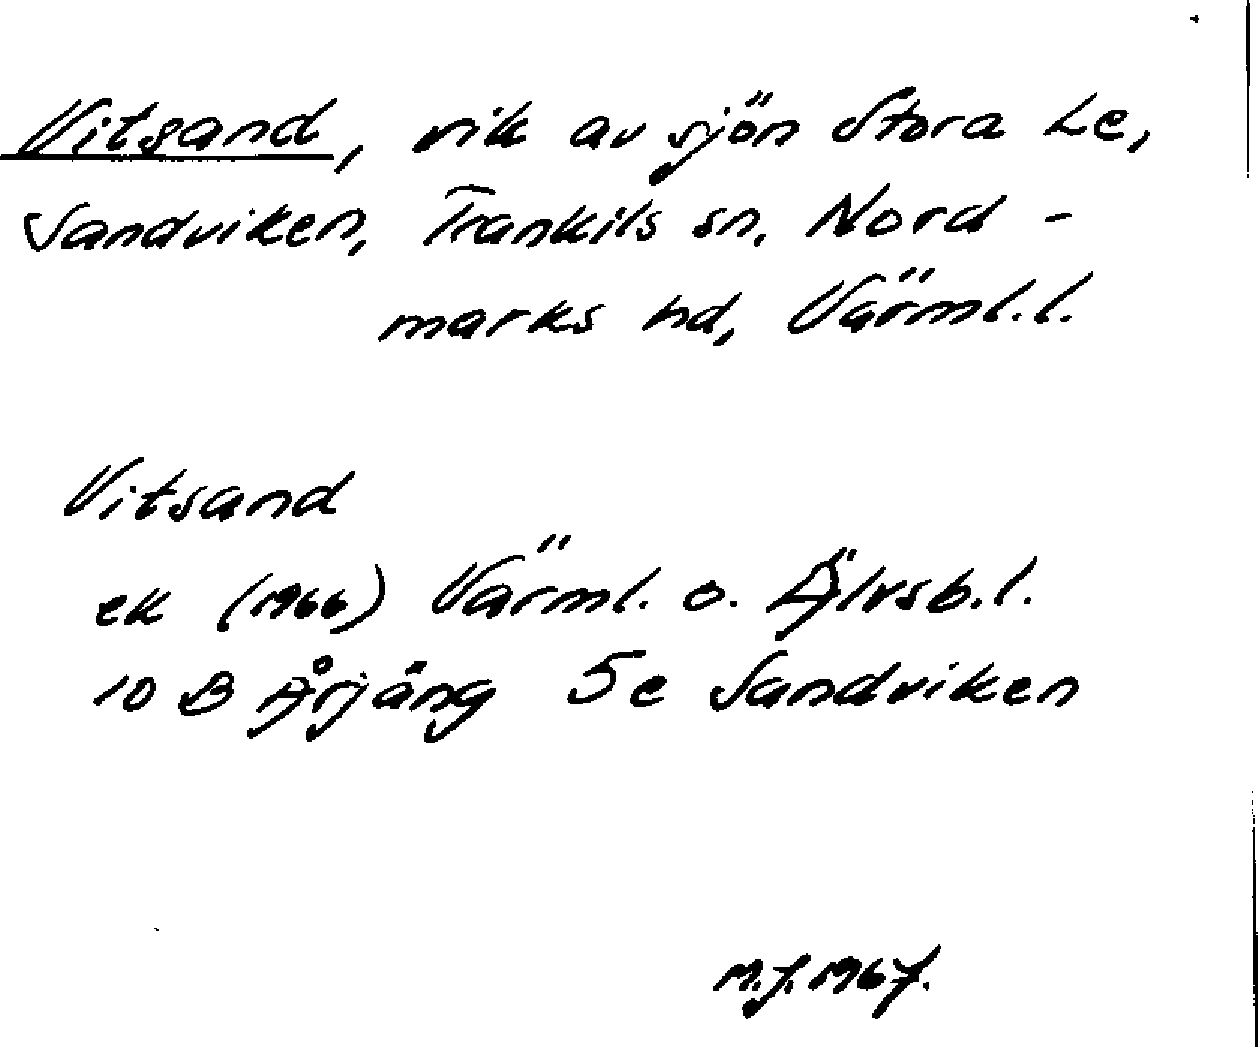 Vitsand, vik av sjön Stora Le,
Sandviken, Trankils sn, Nord-
marks hd, Värml.l.
Vitsand
ek (1966) Värml. o. Älvsb.l.
10 B Årjäng 5e Sandviken
M.J. 1967.